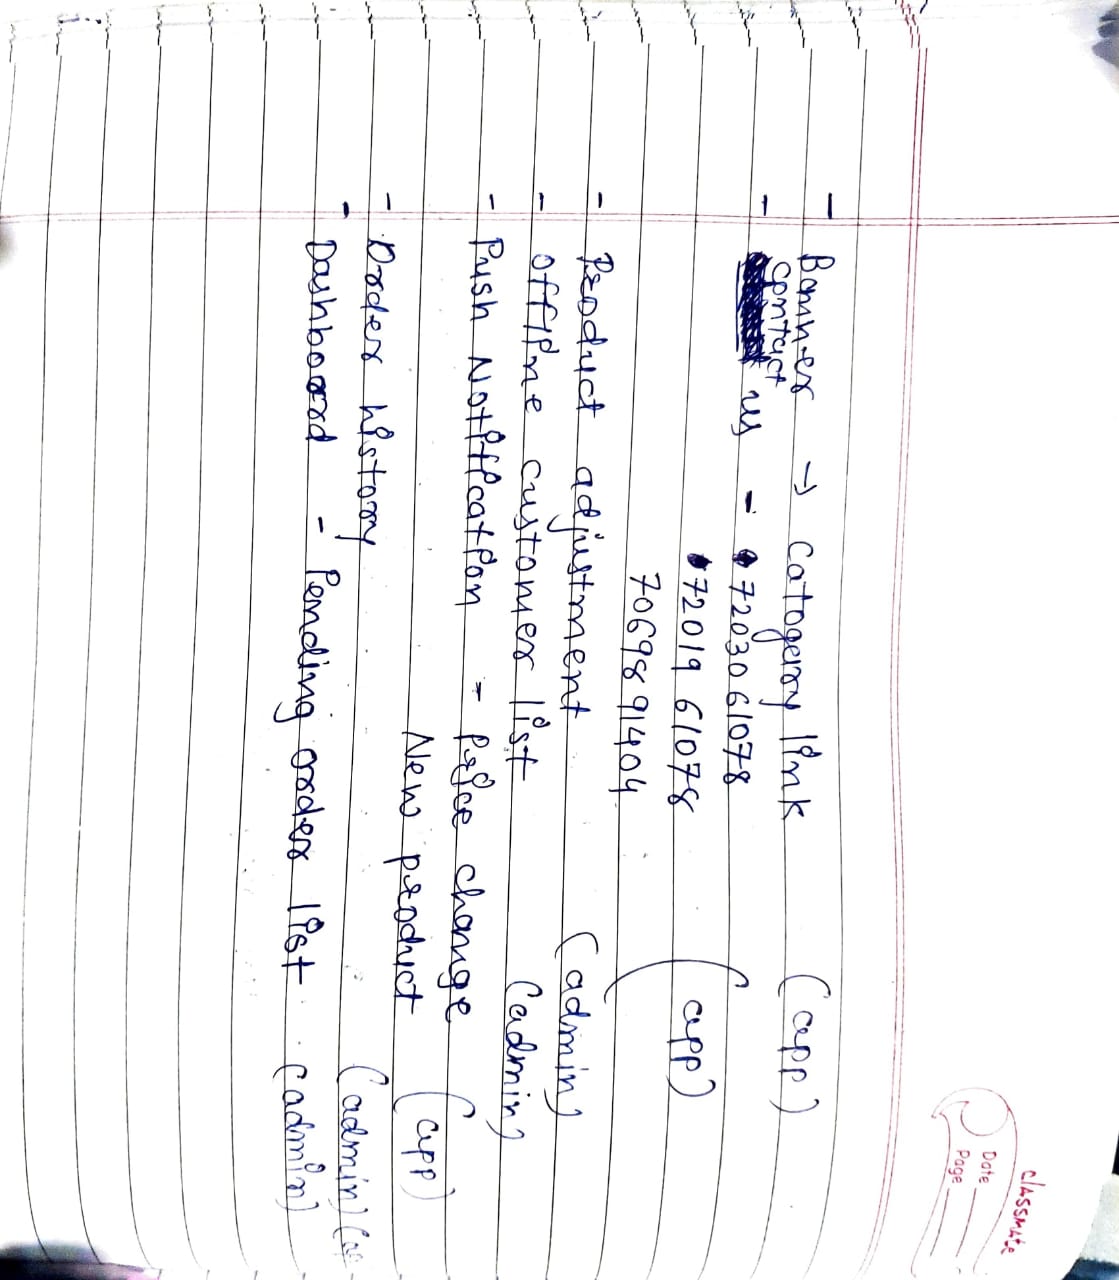 classmate
Date
Page
- Banner → Catogeroy link (app)
contact
- us - 72030 61078
72019 61078 (app)
70698 91404
- Product adjustment (admin)
- offline customer list (admin)
- Push Notification - Price change
New product (app)
- Order history (admin)
- Dashboard - Pending order list (admin)